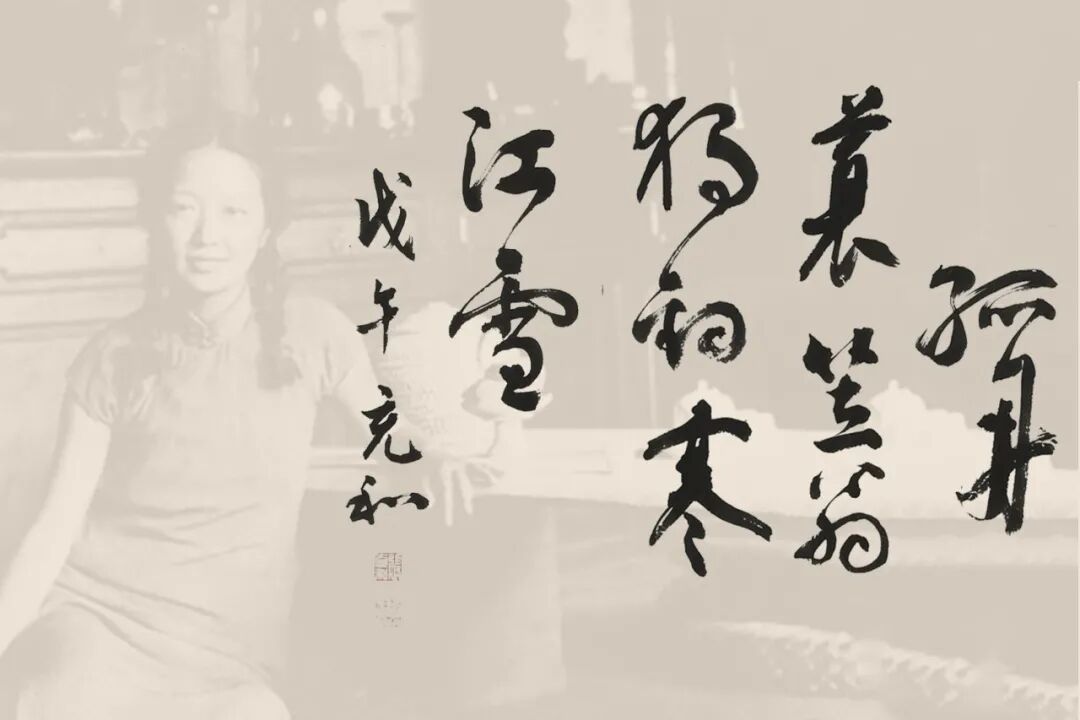 孤舟
蓑笠翁
獨釣寒
江雪
戊午充和